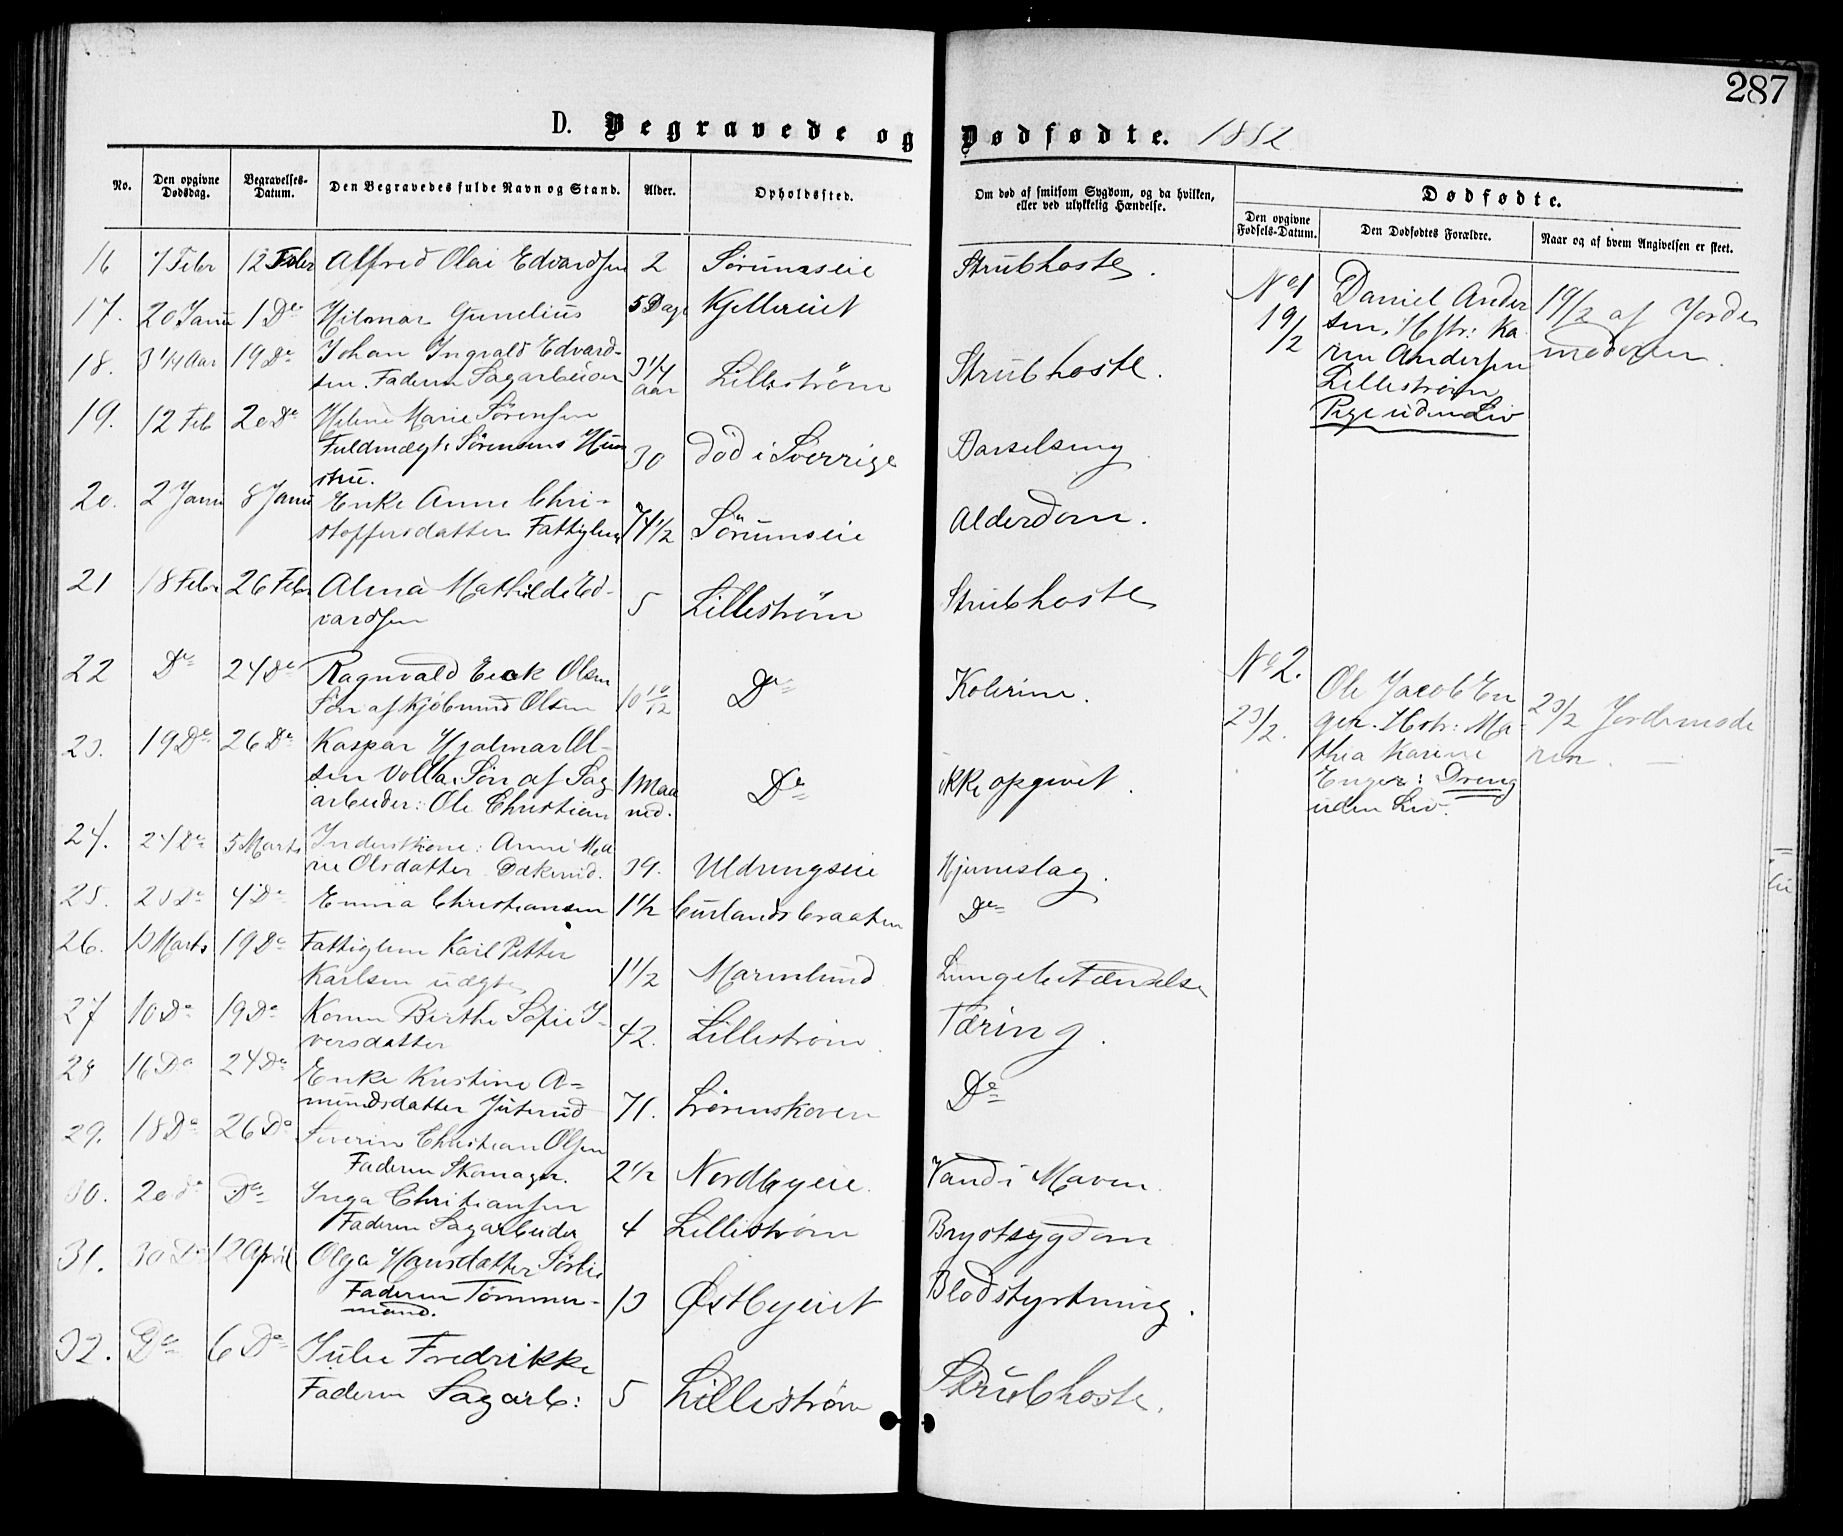 287
D. Begravede og Dødfødte. 1882
No. Den opgivne Dødsdag. Begravelses-Datum. Den Begravedes fulde Navn og Stand. Alder. Opholdssted. Om død af smitsom Sygdom, og da hvilken, eller ved ulykkelig Hændelse.
Dødfødte.
Den opgivne Fødsels-Datum. Den Dødfødtes Forældre. Naar og af hvem Angivelsen er skeet.
16 7 Febr 12 Febr Alfred Olai Edvardsen 2 Sørumseie Strubhoste.
17. 20 Janu 1 Do Hilmar Gunelius 5 Dage Kjellereiet
18. 3 1/4 Aar 19 Do Johan Ingvald Edvard-
sen. Faderen Sagarbeider 3 1/4 Aar Lillestrøm Strubhoste.
19. 12 Feb 20 Do Helene Marie Sørensen
Fuldmægt. Sørensens Hus-
tru. 30 død i Sverrige Barselseng
20. 2 Janu 8 Janu Enke Anne Chri-
stoffersdatter Fattiglem 74 1/2 Sørumseie Alderdom.
21 18 Febr 26 Febr Alma Mathilde Ed-
vardsen 5 Lillestrøm Strubhoste
22 Do 24 Do Ragnvald Eick Olsen
Søn af Kjøbmand Olsen 10 10/12 Do Kolerine.
23. 19 Do 26 Do Kaspar Hjalmar Ol-
sen Volla. Søn af Sag
arbeider: Ole Christian 1 Maa
ned. Do ikke opgivet.
24. 24 Do 5 Marts Inderstkone: Anne Ma
rie Olsdatter 39. Uldrungseie Hjerneslag.
25. 25 Do 4 Do Emma Christiansen 1 1/2 Do
26. 13 Marts 19 Do Fattiglem Karl Petter
Karlsen uægte 1 1/2 Marmlund Lungebetændelse
27 10 Do 19 Do Konen Berthe Sofie I-
versdatter 42. Lillestrøm Tæring.
28 16 Do 24 Do Enke Kristine A-
mundsdatter Juterud 71. Lørenskoven Do
29. 18 Do 26 Do Severin Christian Olsen
Faderen Skomager. 2 1/2 Nordbyeie. Vand i Maven
30. 20 do Do Inga Christiansen
Faderen Sagarbeider 4 Lillestrøm Brystsygdom
31. 30 Do 12 April Olga Hansdatter Sørlie
Faderen Tømmer-
mand. 13 Østbyeiet Blodstyrtning.
32. Do 6 Do Julie Fredrikke
Faderen Sagarb: 5 Lillestrøm Strubhoste.
No 1
19/2
Daniel Ander
sen, Hstr: Ka
ren Andersen
Lillestrøm
Pige uden Liv
19/2 af Jorde
moderen.
No 2.
23/2.
Ole Jacob En
ger. Hstr: Ma-
thia Karine
Enger: Dreng
uden Liv.
23/2 Jordemode
ren. —